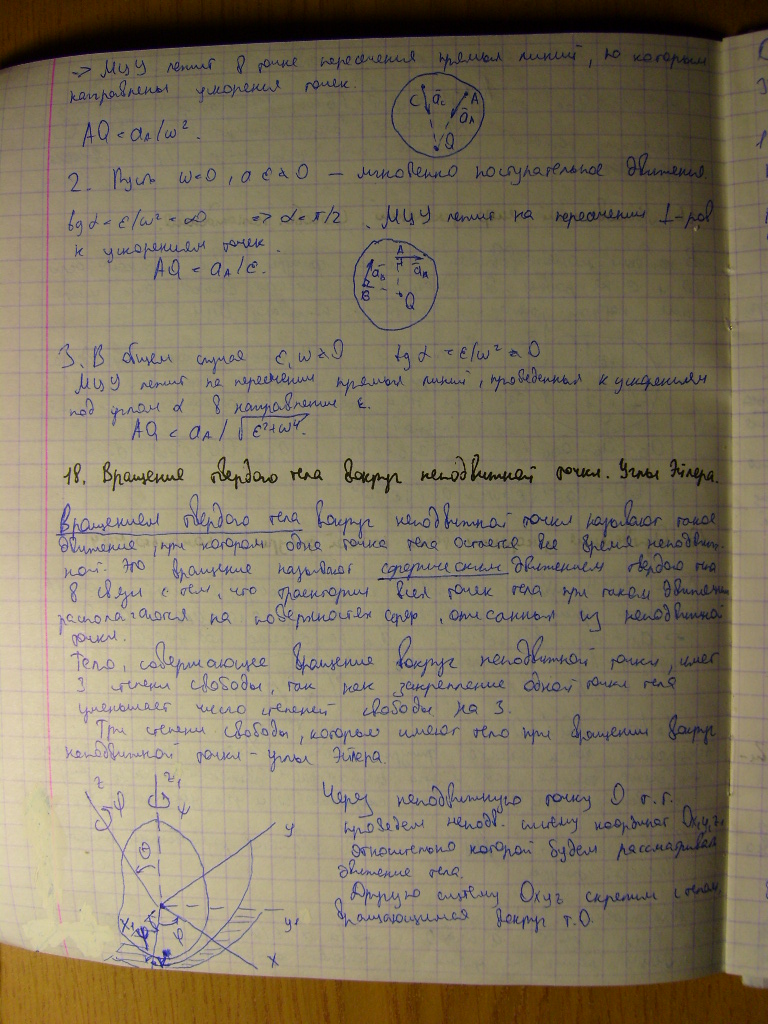 => МЦУ лежит в точке пересечения прямых линий, по которым
направлены ускорения точек.
C ā_c A ā_A Q
AQ = a_A/ω².
2. Пусть ω=0, а ε≠0 — мгновенно поступательное движение.
tg α = ε/ω² = ∞ => α = π/2. МЦУ лежит на пересечении ⊥-ров
к ускорениям точек.
AQ = a_A/ε.
A ā_B ā_A B Q
3. В общем случае ε, ω ≠ 0 tg α = ε/ω² ≠ 0
МЦУ лежит на пересечении прямых линий, проведенных к ускорениям
под углом α в направлении ε.
AQ = a_A/√(ε²+ω⁴).
18. Вращение твердого тела вокруг неподвижной точки. Углы Эйлера.
Вращением твердого тела вокруг неподвижной точки называют такое
движение, при котором одна точка тела остается все время неподвиж-
ной. Это вращение называют сферическим движением твердого тела
в связи с тем, что траектории всех точек тела при таком движении
располагаются на поверхностях сфер, описанных из неподвижной
точки.
Тело, совершающее вращение вокруг неподвижной точки, имеет
3 степени свободы, так как закрепление одной точки тела
уменьшает число степеней свободы на 3.
Три степени свободы, которые имеет тело при вращении вокруг
неподвижной точки - углы Эйлера.
z φ z₁ ψ
Через неподвижную точку О т.т.
проведем неподв. систему координат Ox₁y₁z₁
относительно которой будем рассматривать
движение тела.
Другую систему Oxyz скрепим с телом,
вращающимся вокруг т.О.
y
θ
y₁
x₁ ψ φ
x